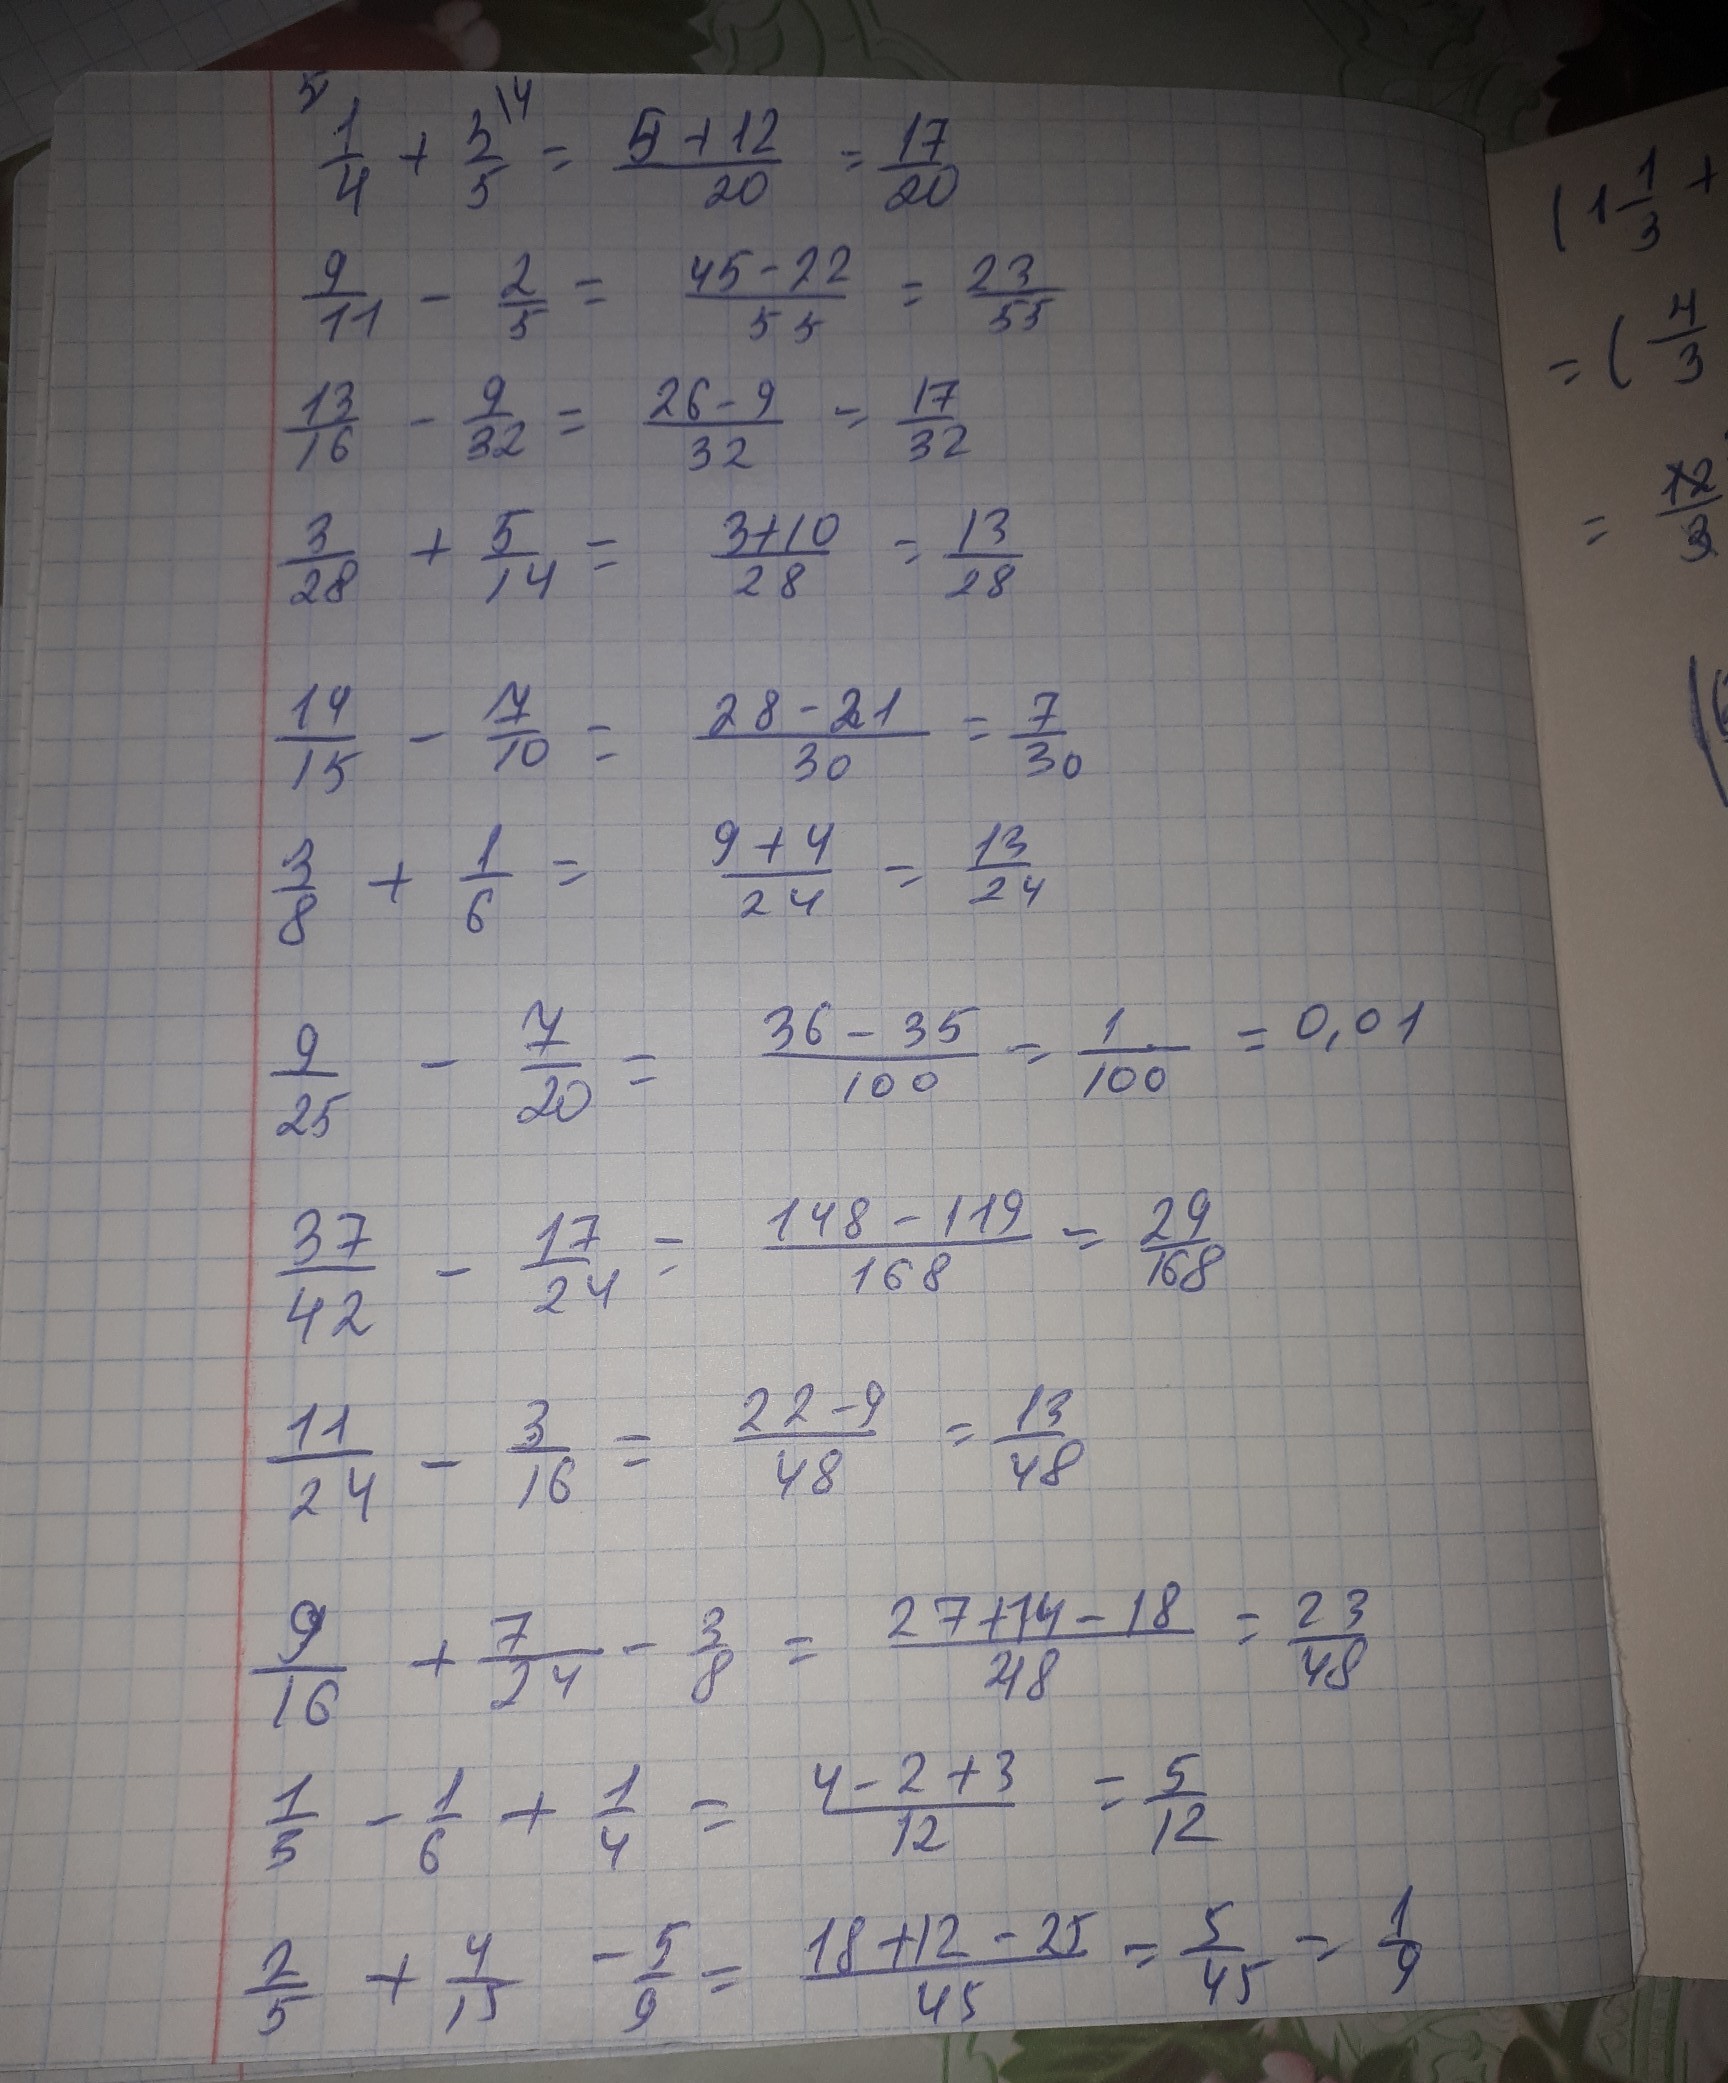 5 1/4 + 3/5 14 = (5+12)/20 = 17/20
9/11 - 2/5 = (45-22)/55 = 23/55
13/16 - 9/32 = (26-9)/32 = 17/32
3/28 + 5/14 = (3+10)/28 = 13/28
14/15 - 7/10 = (28-21)/30 = 7/30
3/8 + 1/6 = (9+4)/24 = 13/24
9/25 - 7/20 = (36-35)/100 = 1/100 = 0,01
37/42 - 17/24 = (148-119)/168 = 29/168
11/24 - 3/16 = (22-9)/48 = 13/48
9/16 + 7/24 - 3/8 = (27+14-18)/48 = 23/48
1/3 - 1/6 + 1/4 = (4-2+3)/12 = 5/12
2/5 + 4/15 - 5/9 = (18+12-25)/45 = 5/45 = 1/9
(1 1/3 +
= (4/3
= 12/3